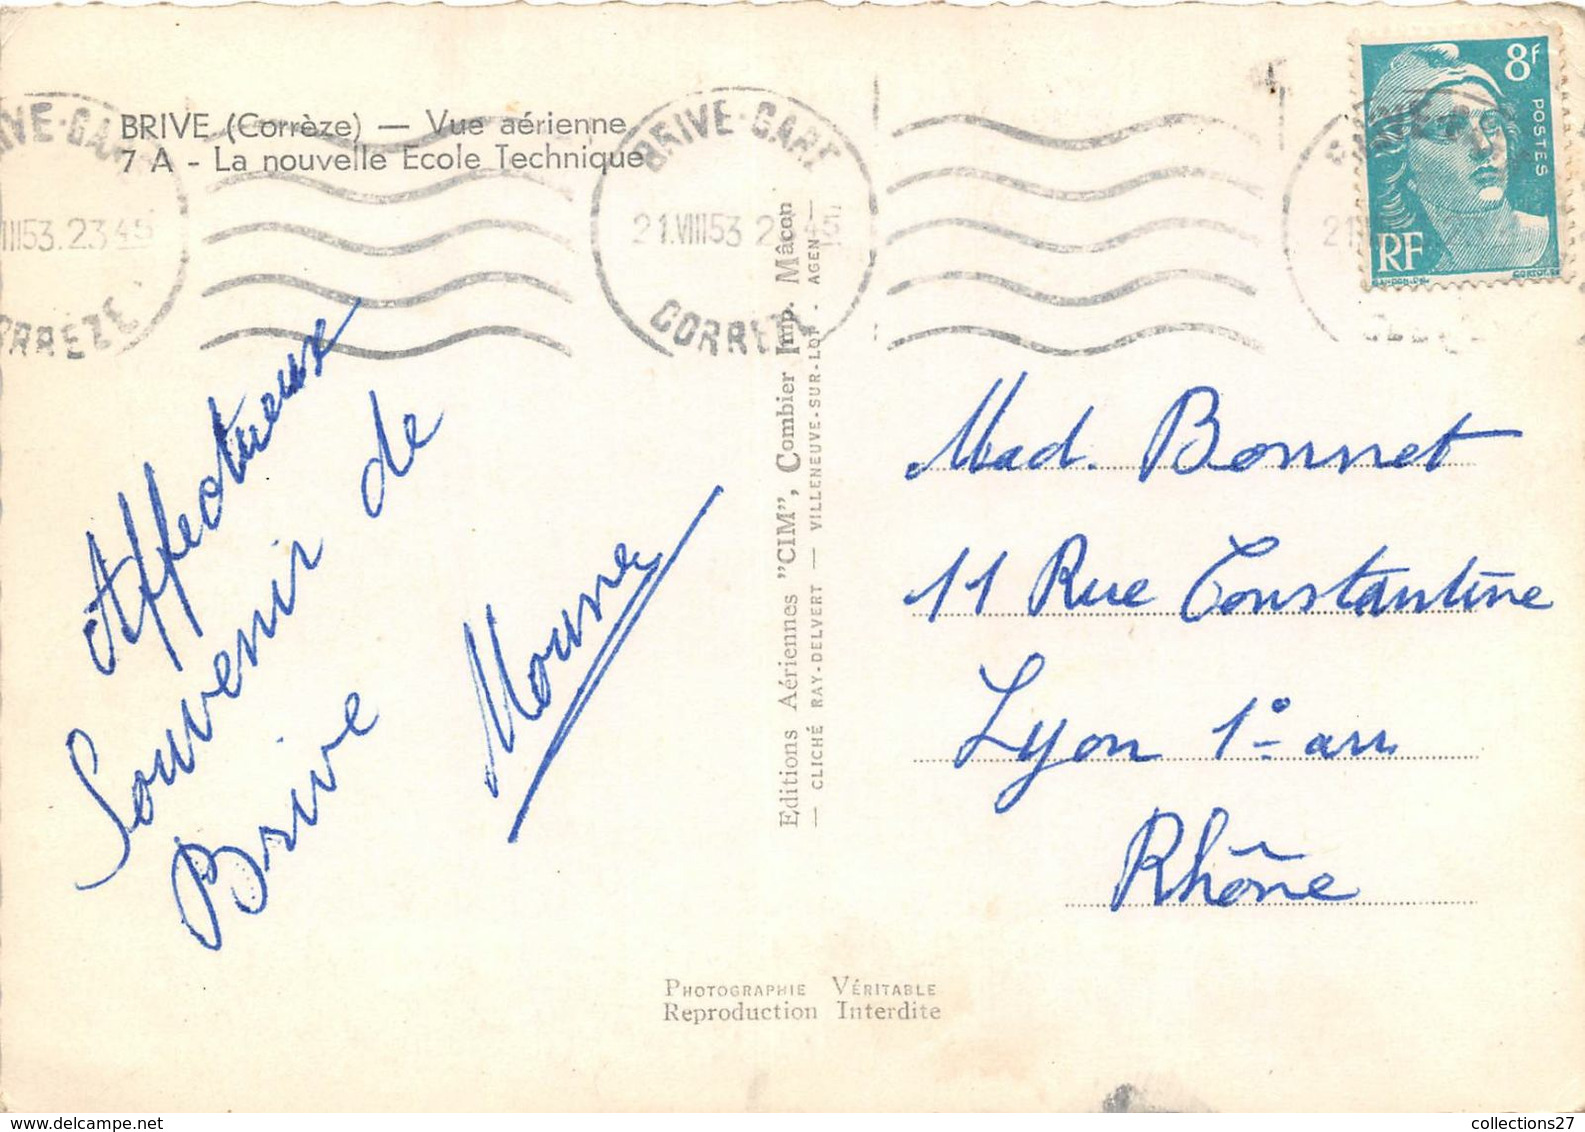 BRIVE (Corrèze) — Vue aérienne
7 A - La nouvelle Ecole Technique
BRIVE-GARE
21.VIII53 23 45
CORREZE
8f
POSTES
RF
Affectueux
Souvenir de
Brive
Moune
Editions Aériennes "CIM", Combier Imp. Mâcon
— CLICHÉ RAY-DELVERT — VILLENEUVE-SUR-LOT - AGEN —
Mad. Bonnet
11 Rue Constantine
Lyon 1º arr
Rhône
PHOTOGRAPHIE VÉRITABLE
Reproduction Interdite
collections27